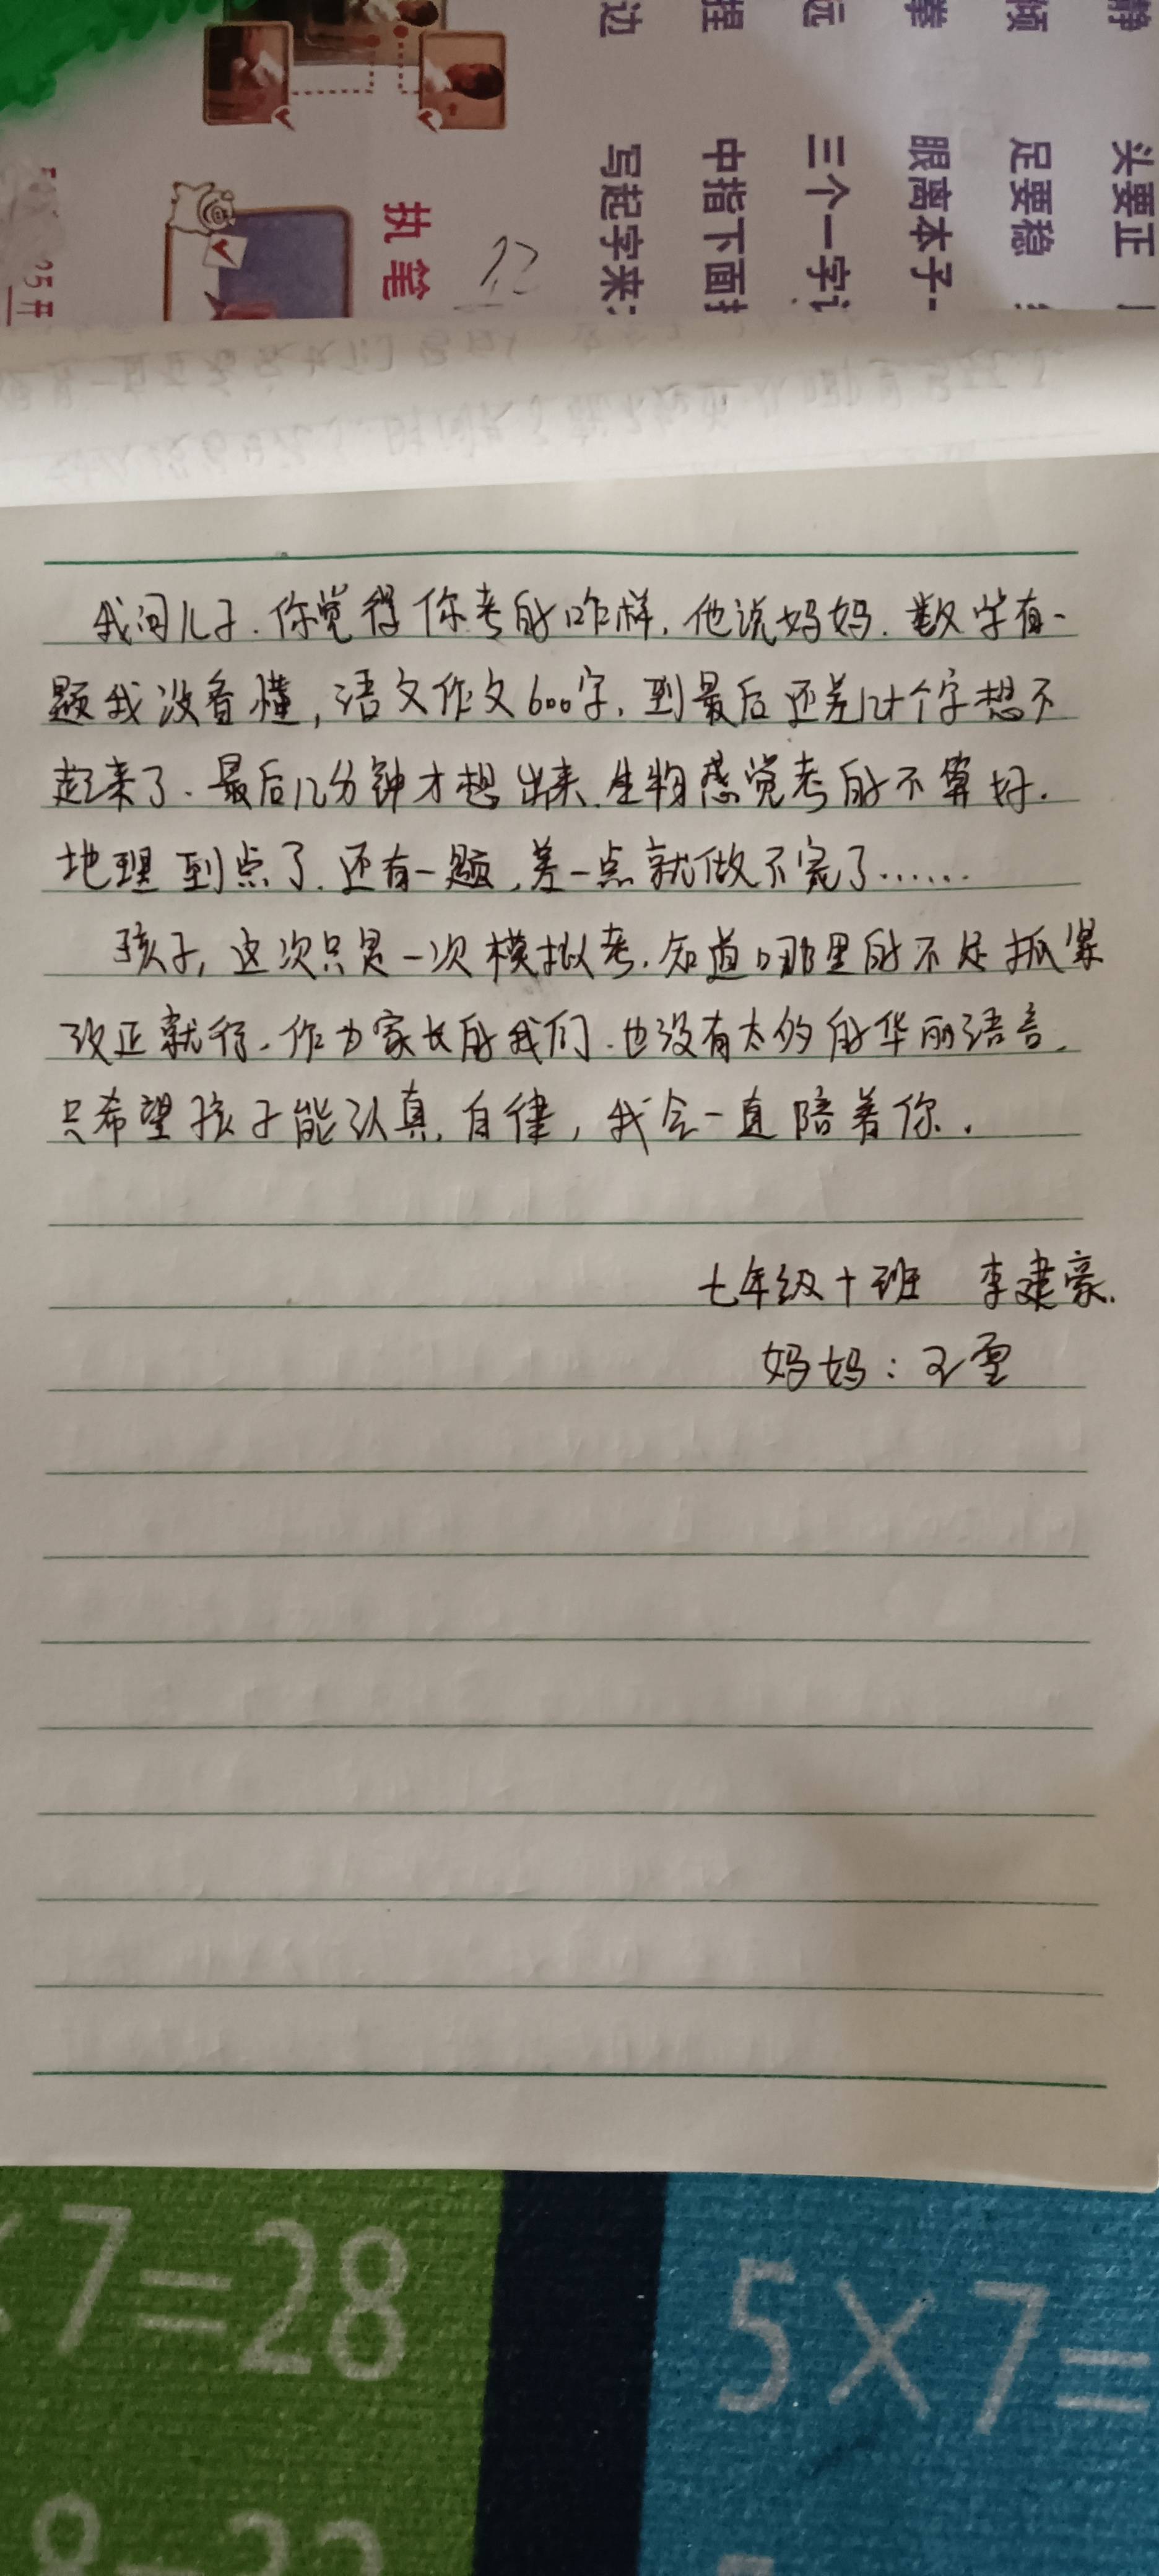 静
倾
拳
远
捏
边
头要正
足要稳
眼离本子一
三个一字
中指下面
写起字来
执笔
12
我问儿子.你觉得你考的咋样,他说妈妈.数学有一
题我没看懂,语文作文600字,到最后还差几十个字想不
起来了.最后几分钟才想出来.生物感觉考的不算好.
地理到点了.还有一题,差一点就做不完了……
孩子,这次只是一次模拟考.知道哪里的不足抓紧
改正就行.作为家长的我们.也没有太多的华丽语言.
只希望孩子能认真,自律,我会一直陪着你.
七年级十班 李建豪.
妈妈:王雪
×7=28
5×7=